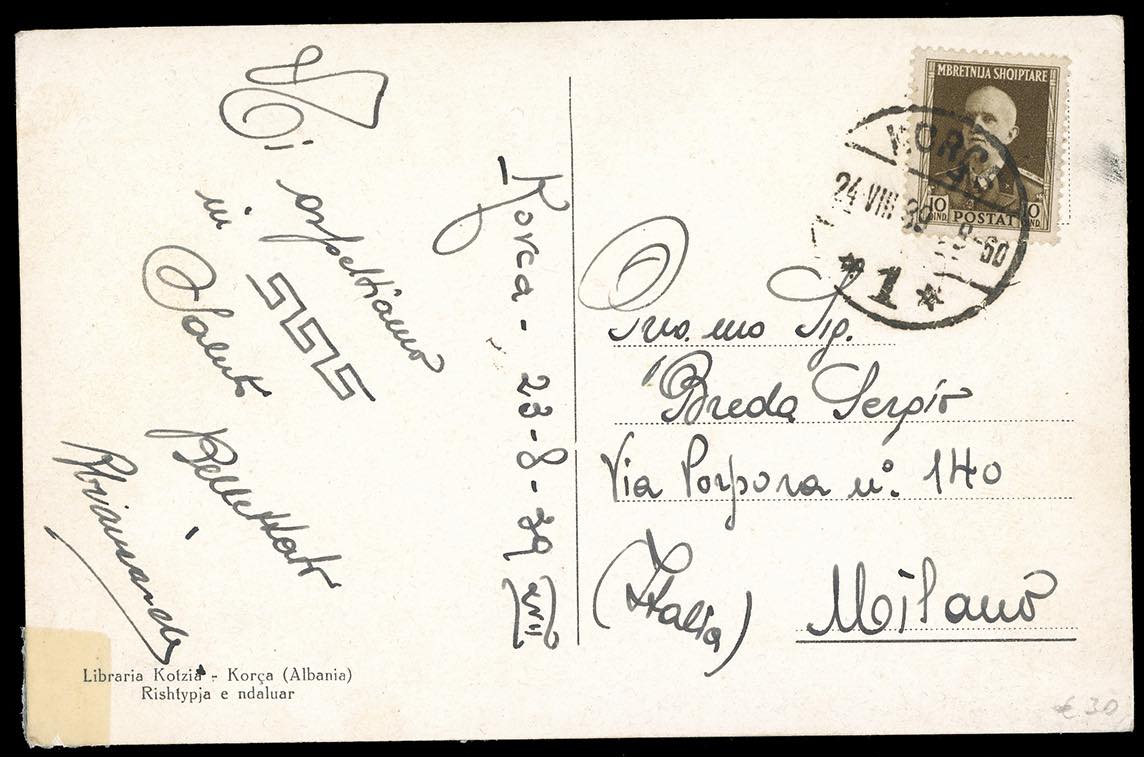 Vi aspettiamo
in
Saluto
Korca - 23-8-39 XVII
Libraria Kotzia - Korça (Albania)
Rishtypja e ndaluar
MBRETNIJA SHQIPTARE
10 POSTAT 10
QIND. QIND.
KORÇA
24 VIII 39
*1*
Sig.
Breda Sergio
Via Porpora n°. 140
(Italia) Milano
€ 30